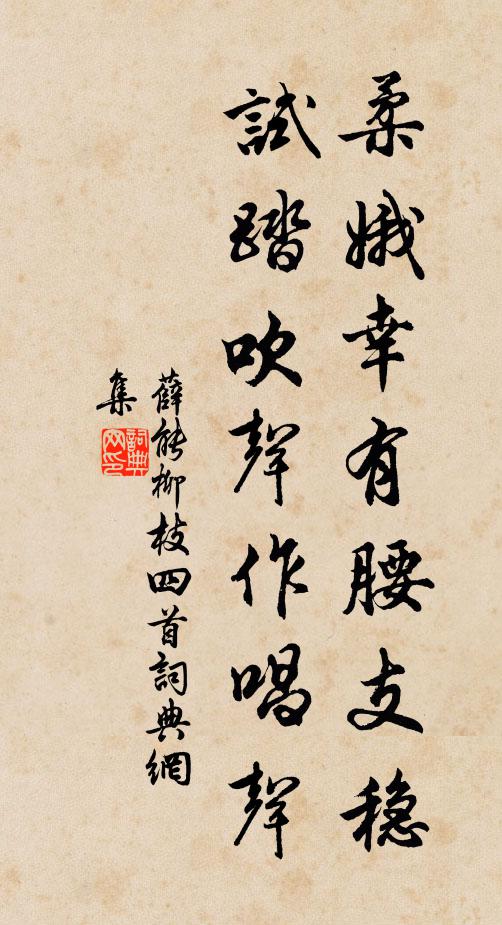 柔娥幸有腰支稳
試踏吹聲作唱聲
薛能柳枝四首詞典網
集
詞典网印